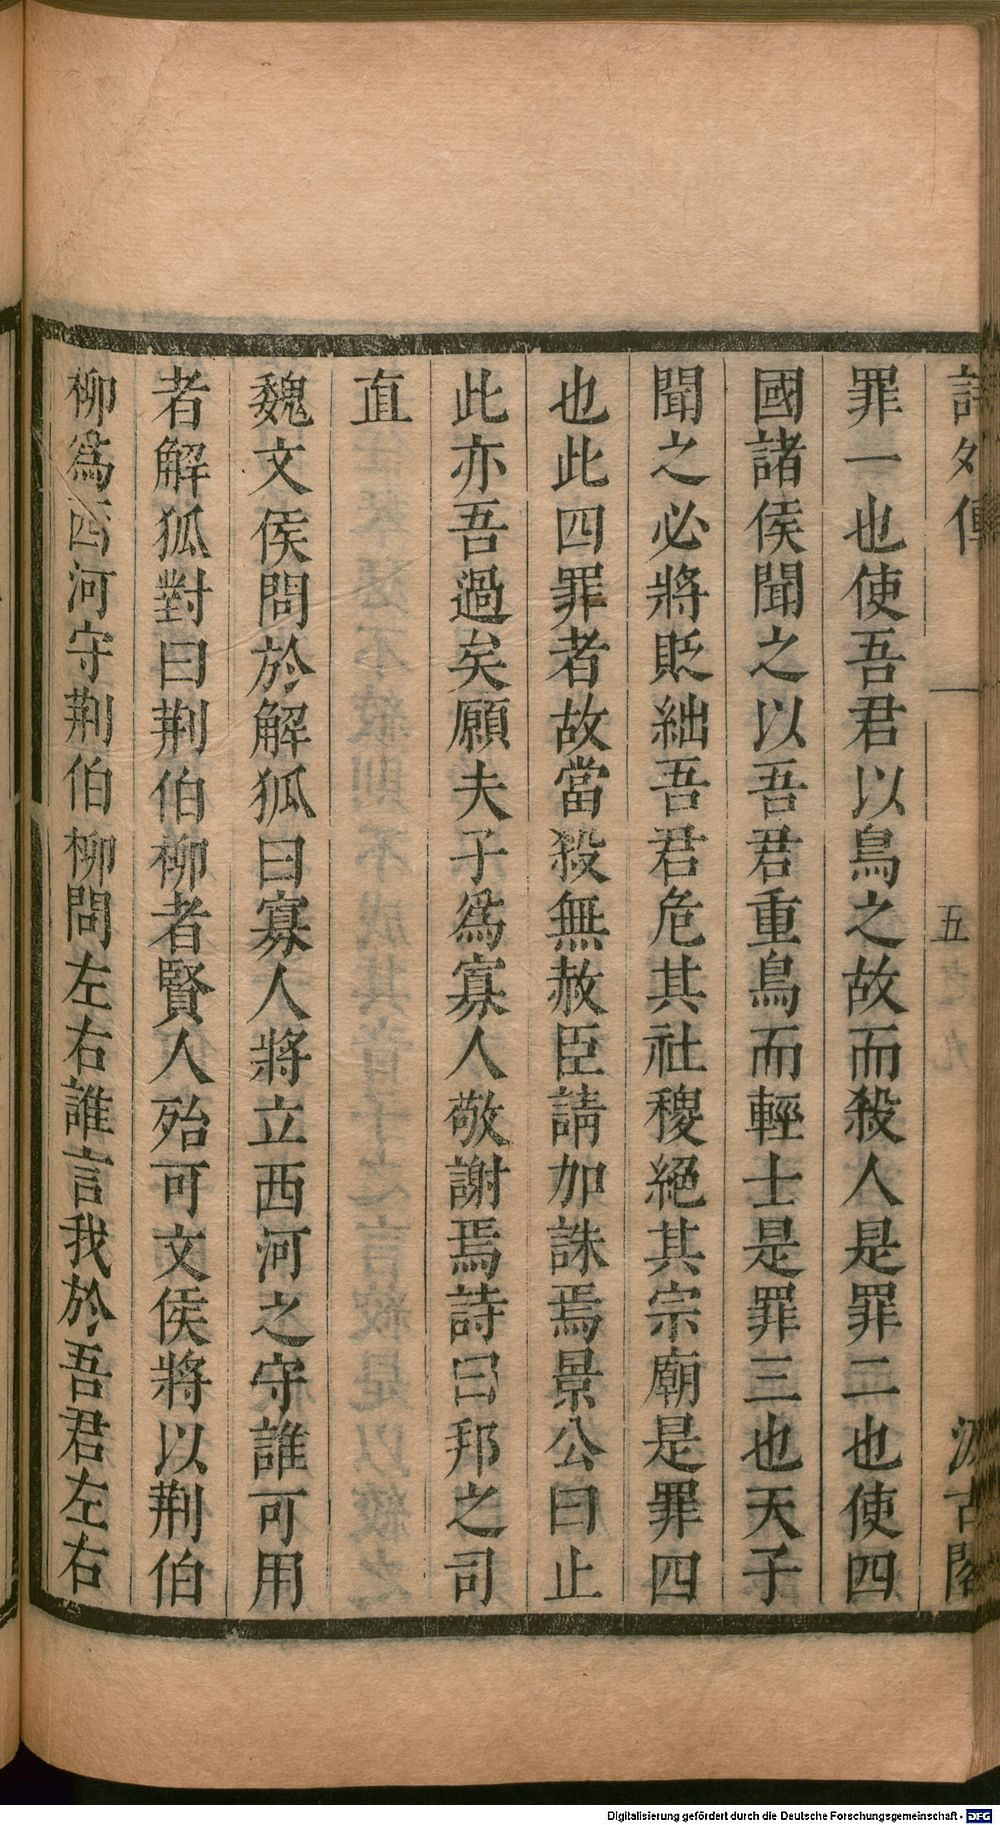 詩外傳 一 五 之九 汲古閣
罪一也使吾君以鳥之故而殺人是罪二也使四
國諸侯聞之以吾君重鳥而輕士是罪三也天子
聞之必將貶絀吾君危其社稷絕其宗廟是罪四
也此四罪者故當殺無赦臣請加誅焉景公曰止
此亦吾過矣願夫子爲寡人敬謝焉詩曰邦之司
直
魏文侯問於解狐曰寡人將立西河之守誰可用
者解狐對曰荆伯柳者賢人殆可文侯將以荆伯
柳爲西河守荆伯柳問左右誰言我於吾君左右
Digitalisierung gefördert durch die Deutsche Forschungsgemeinschaft - DFG